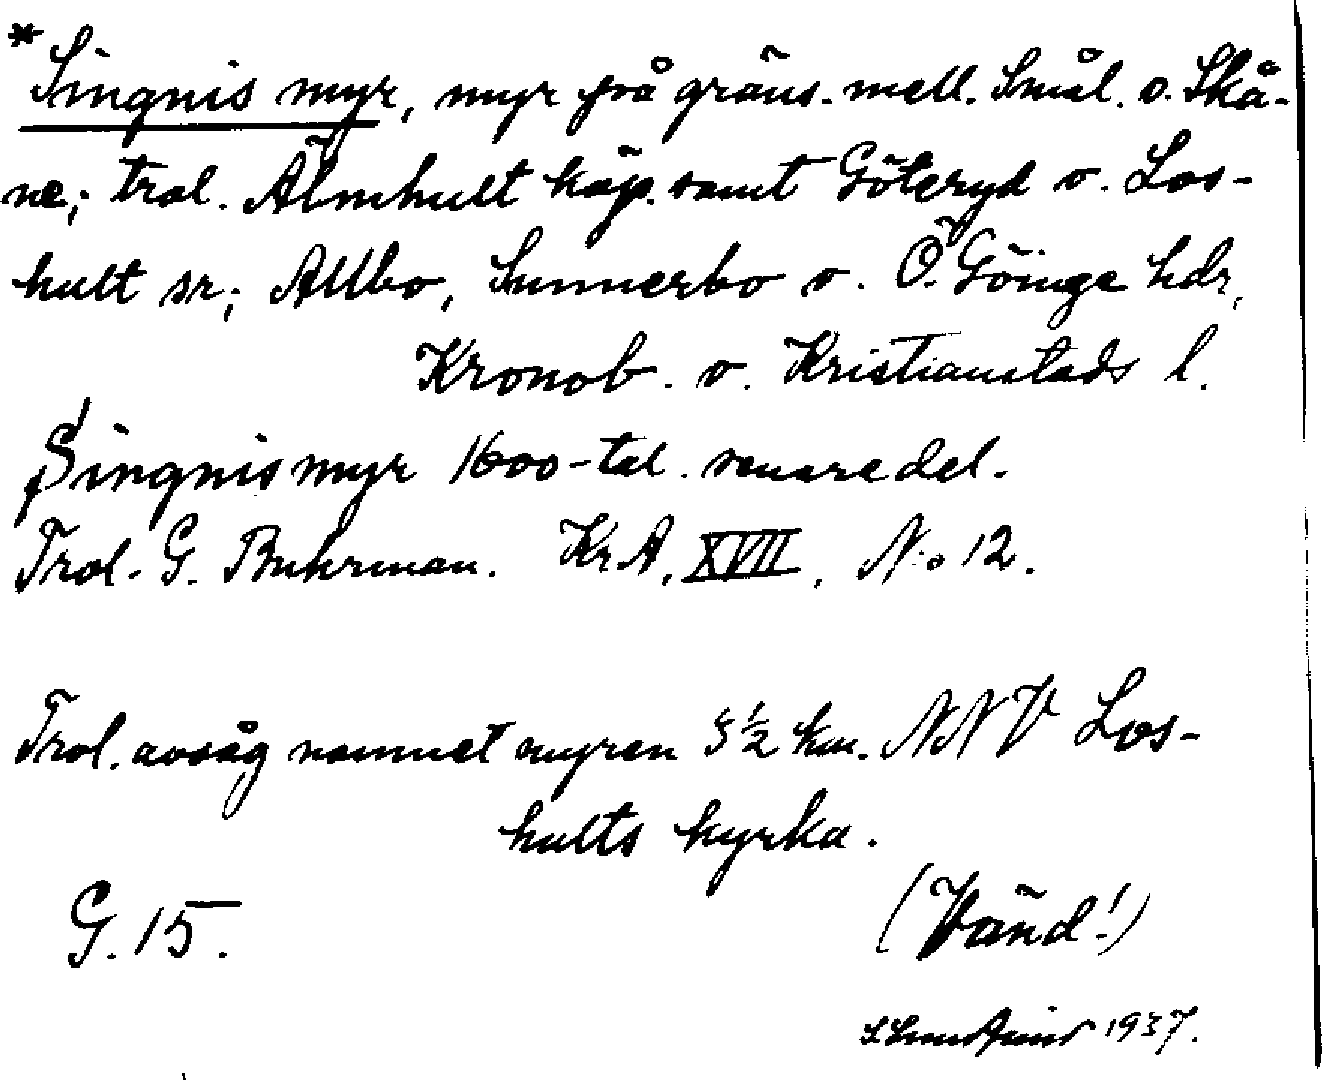 *Singnis myr, myr på gräns. mell. Smål. o. Skå-
ne; trol. Älmhult köp. samt Göteryd o. Los-
hult sr; Allbo, Sunnerbo o. Ö. Göinge hdr,
Kronob. o. Kristianstads l.
Singnis myr 1600-tal. senare del.
Trol. G. Buhrman. KrA, XVII, No 12.
Trol. avsåg namnet myren 5 1/2 km. NNV Los-
hults kyrka.
G. 15.
(Vänd!)
1937.